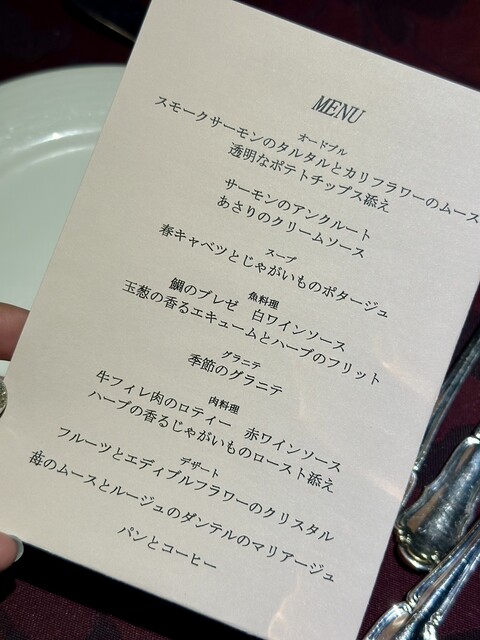 MENU
オードブル
スモークサーモンのタルタルとカリフラワーのムース
透明なポテトチップス添え
サーモンのアンクルート
あさりのクリームソース
スープ
春キャベツとじゃがいものポタージュ
魚料理
鯛のブレゼ　白ワインソース
玉葱の香るエキュームとハーブのフリット
グラニテ
季節のグラニテ
肉料理
牛フィレ肉のロティー　赤ワインソース
ハーブの香るじゃがいものロースト添え
デザート
フルーツとエディブルフラワーのクリスタル
苺のムースとルージュのダンテルのマリアージュ
パンとコーヒー